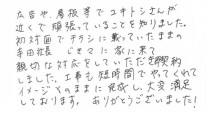 広告や、看板等でユキトシさんが
近くで頑張っていることを知りました。
初対面でチラシに載っていたままの
寺田社長 じきに家に来て
親切な対応をしていただき契約
しました。工事も短時間でやってくれて
イメージのままに完成し、大変満足
しております。ありがとうございました!